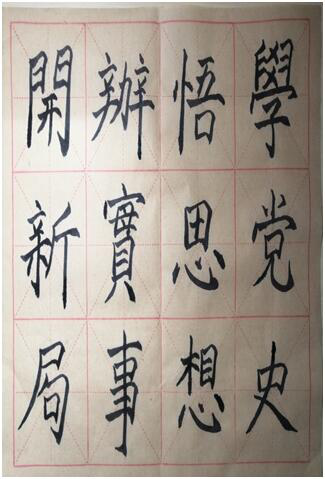 學党史
悟思想
辦實事
開新局